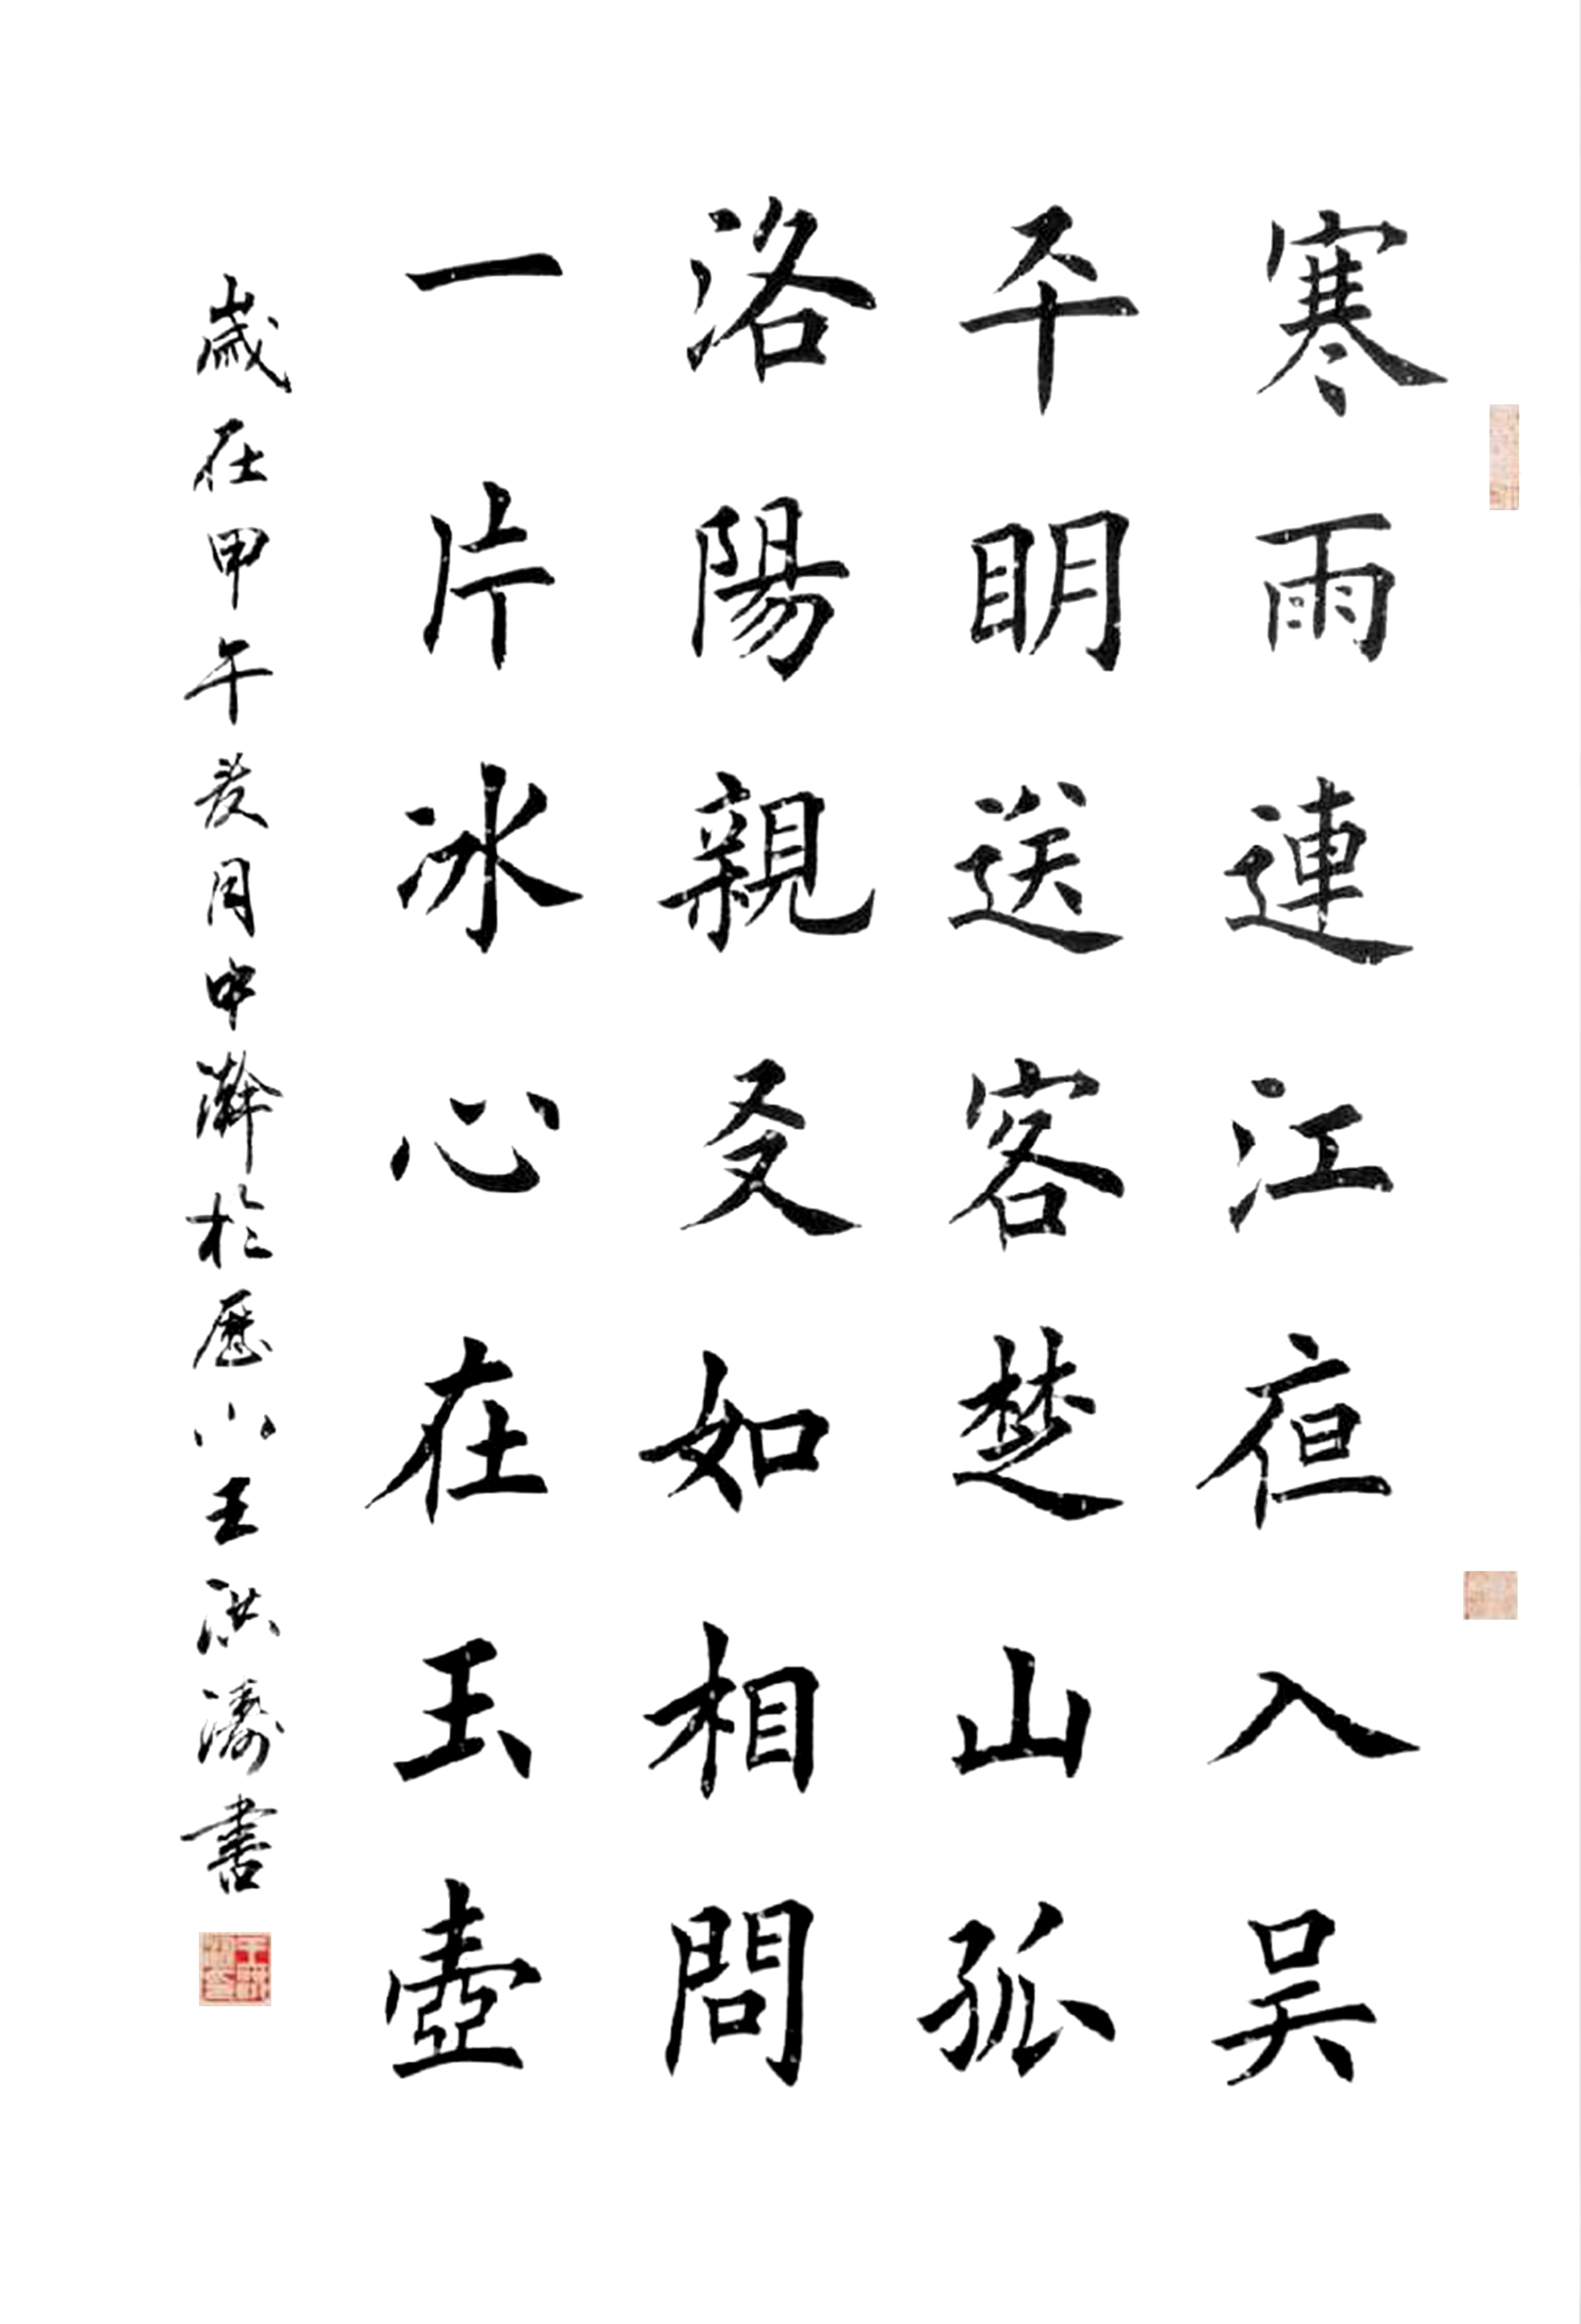 寒雨連江夜入吳
平明送客楚山孤
洛陽親友如相問
一片冰心在玉壺
歲在甲午癸月中澣於歷山王洪濤書